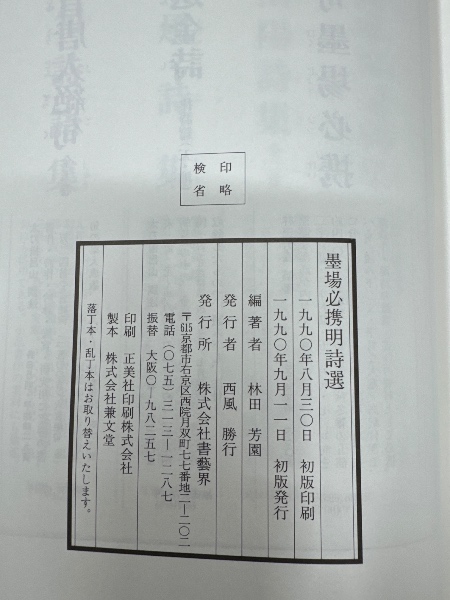 検印
省略
墨場必携明詩選
一九九〇年八月三〇日 初版印刷
一九九〇年九月一一日 初版発行
編著者 林田芳園
発行者 西風勝行
発行所 株式会社書藝界
〒615京都市右京区西院月双町七七番地二ー二〇二
電話(〇七五)三一三ー一二八七
振替 大阪〇ー九八二五七
印刷 正美社印刷株式会社
製本 株式会社兼文堂
落丁本・乱丁本はお取り替えいたします。